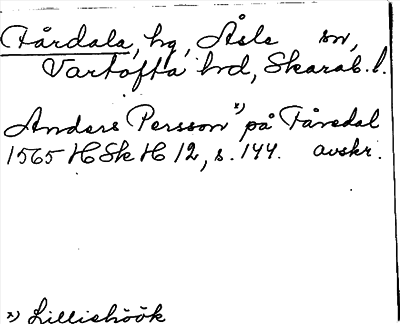 Fårdala, hg, Åsle sn,
Vartofta hd, Skarab. l.
Anders Persson x) på Fåredal
1565 HSkH 12, s. 144. avskr.
x) Lilliehöök